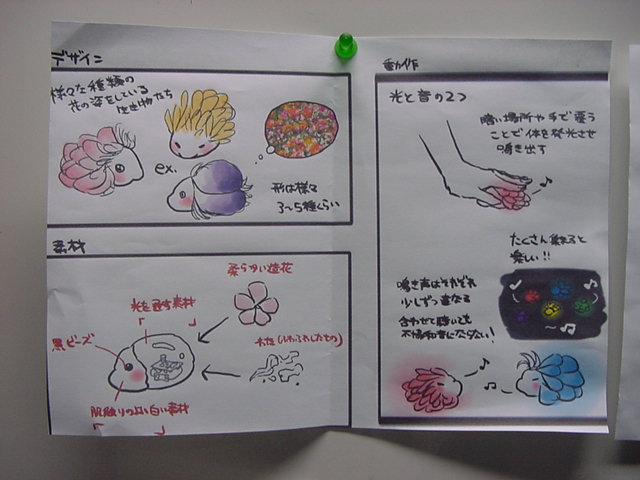 デザイン
様々な種類の
花の姿をしている
生き物たち
ex.
形は様々
3〜5種くらい
素材
柔らかい造花
光を通す素材
黒ビーズ
肌触りの良い白い素材
動作
光と音の2つ
暗い場所や手で覆う
ことで体を発光させ
鳴き出す
たくさん集めると
楽しい!!
鳴き声はそれぞれ
少しずつ異なる
合わせて聴いても
不協和音にならない!